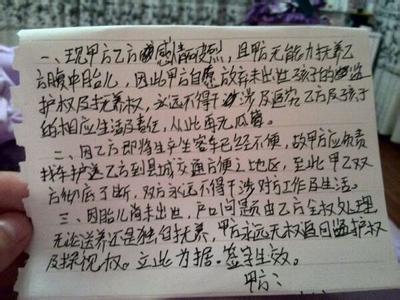 一、现甲方乙方因感情破烈，且甲方无能力扶养乙
方腹中胎儿，因此甲方自愿放弃未出世孩子的监
护权及扶养权，永远不得干涉及追究乙方及孩子
的相应生活及责任，从此再无瓜葛。
二、因乙方即将生产坐客车已经不便，故甲方应负责
找车护送乙方到县城交通方便之地区，至此甲乙双
方彻底了断，双方永远不得干涉对方工作及生活。
三、因胎儿尚未出世，户口问题由乙方全权处理
无论送养还是独自扶养，甲方永远无权过问监护权
及探视权。立此为据。签字生效。
甲方：